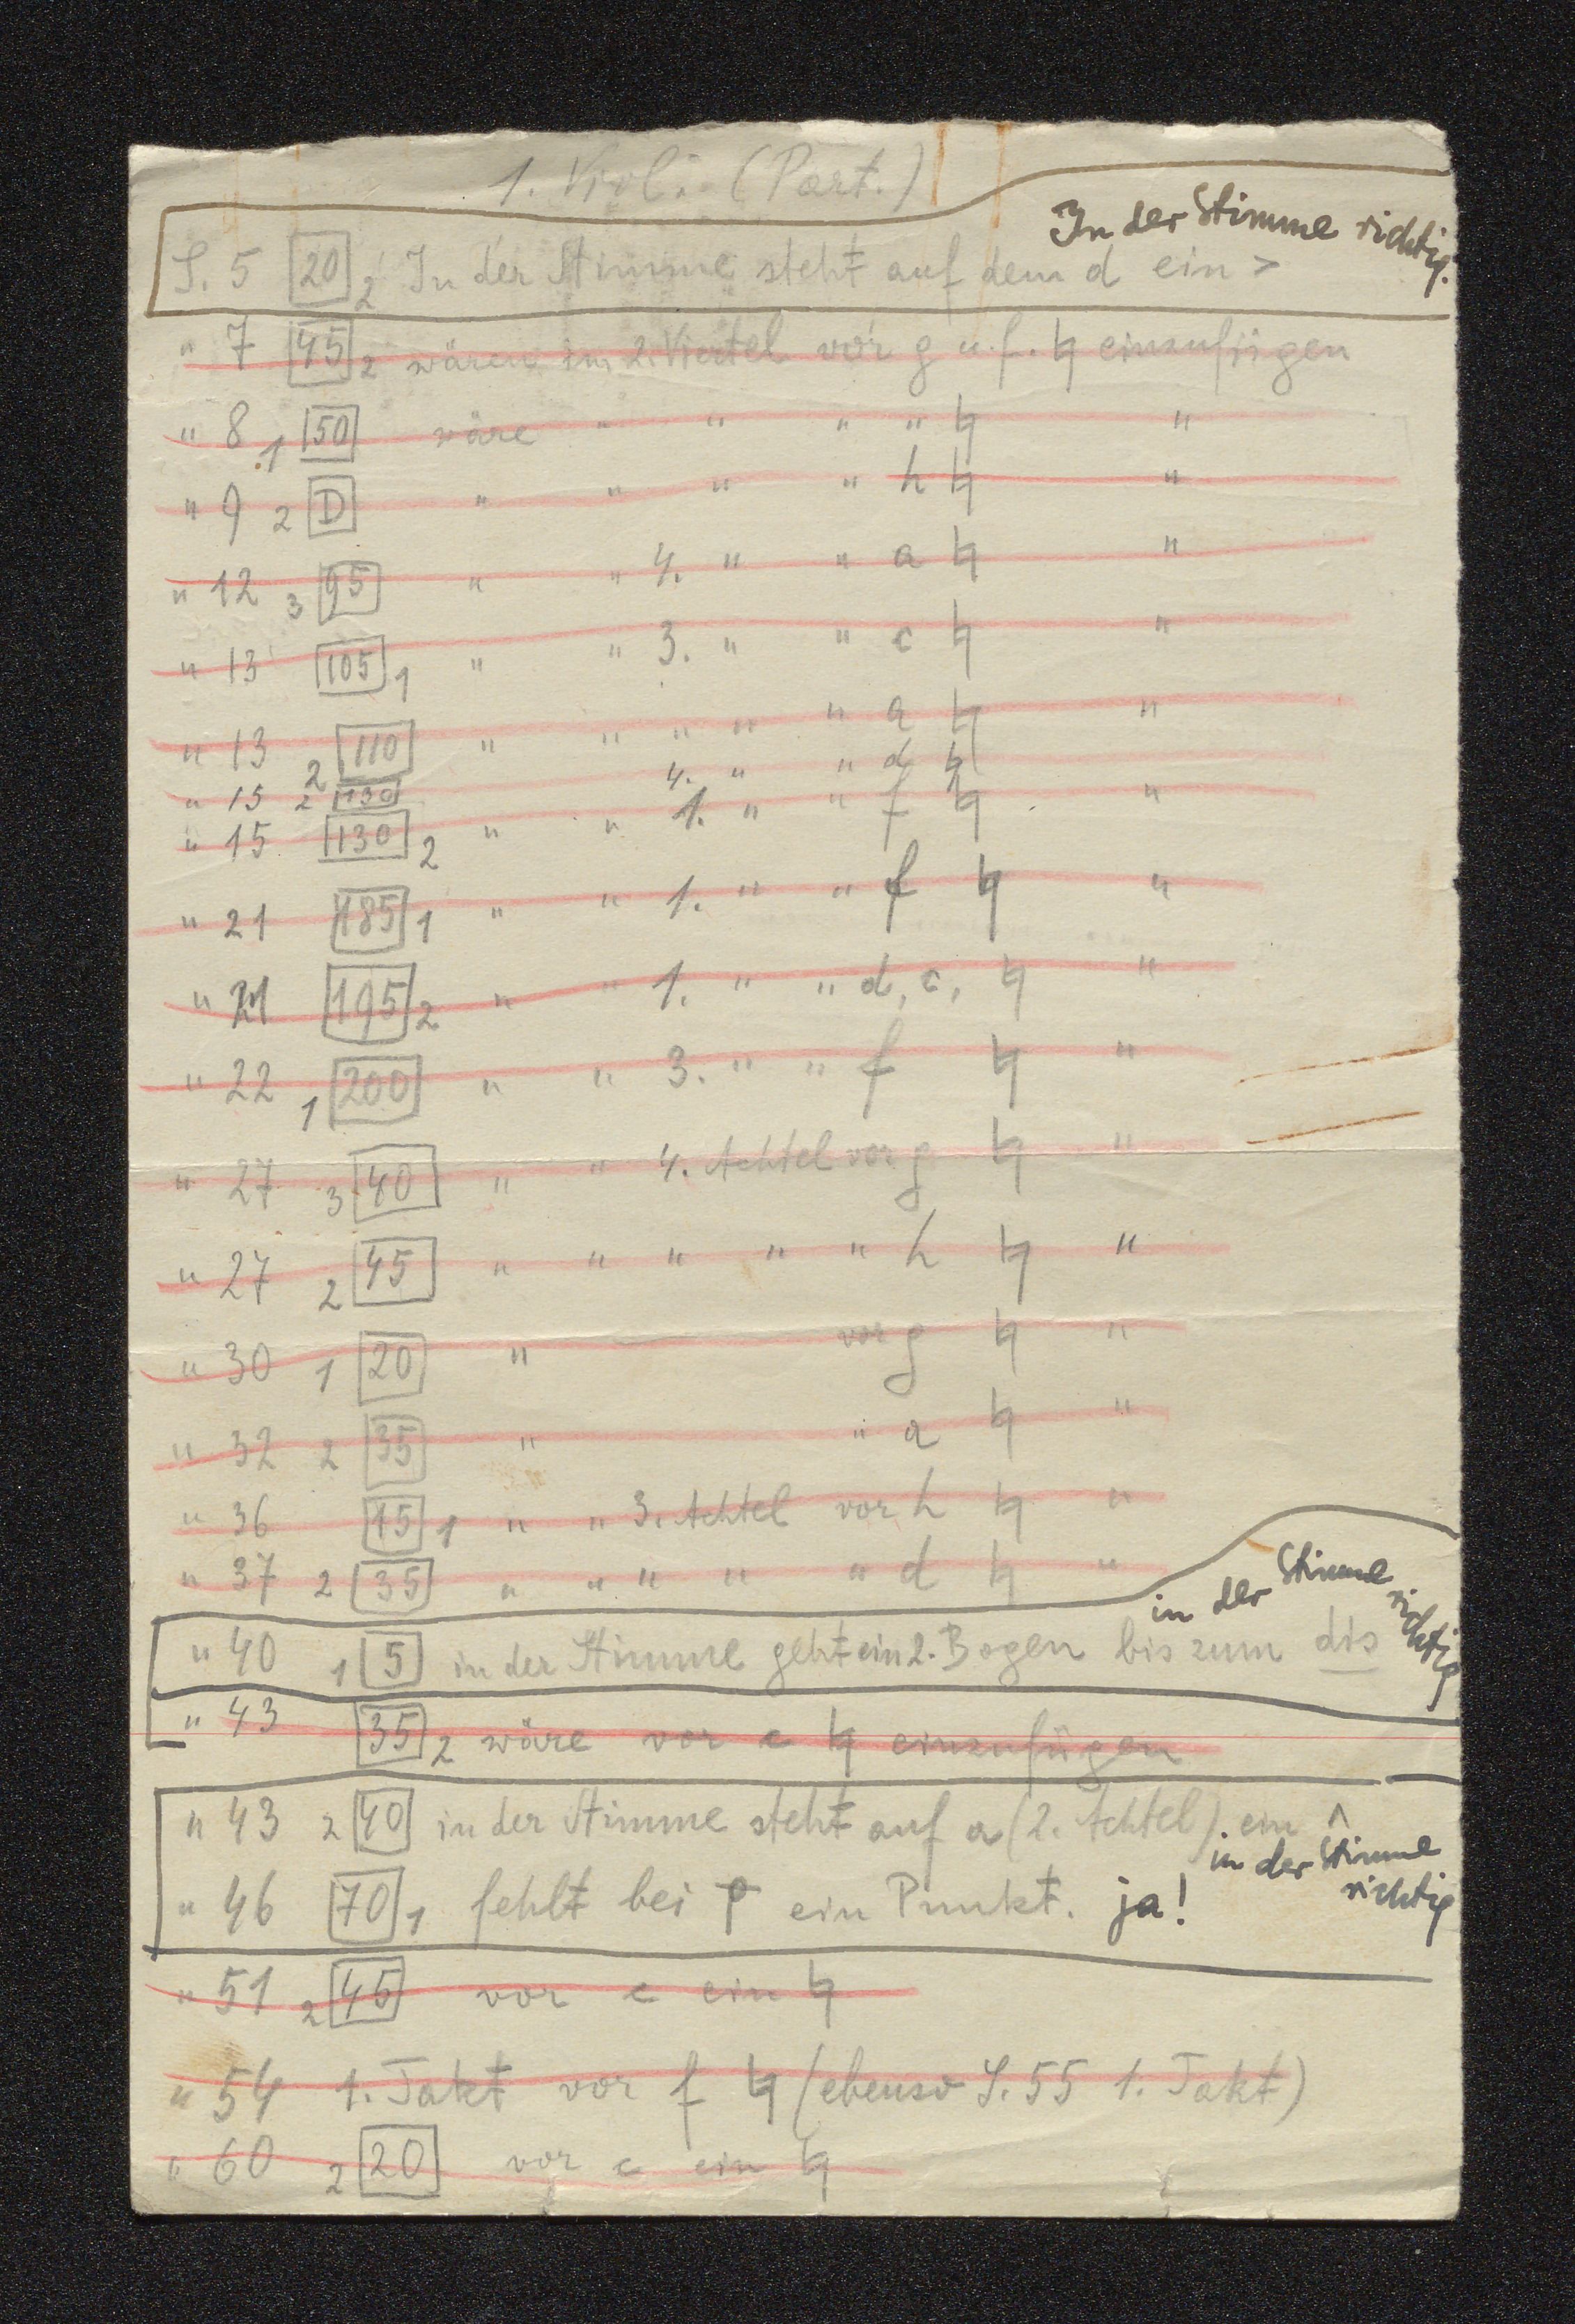 1. Viol. (Part.)
In der Stimme richtig.
S. 5 20 2 In der Stimme steht auf dem d ein >
" 7 45 2 wären im 2. Viertel vor g u. f. ♮ einzufügen
" 8 1 50 wäre " " " " ♮ "
" 9 2 D " " " " h ♮ "
" 12 3 95 " " 4. " " a ♮ "
" 13 105 1 " " 3. " " c ♮ "
" 13 2 110 " " " " " a ♮ "
" 15 2 130 4. " " d ♮
" 15 130 2 " " 1. " " f ♮ "
" 21 185 1 " " 1. " " f ♮ "
" 21 195 2 " " 1. " " d, c, ♮ "
" 22 1 200 " " 3. " " f ♮ "
" 27 3 40 " " 4. Achtel vor g ♮ "
" 27 2 45 " " " " " h ♮ "
" 30 1 20 " vor g ♮ "
" 32 2 35 " " a ♮ "
" 36 15 1 " " 3. Achtel vor h ♮ "
" 37 2 35 " " " " " d ♮ "
in der Stimme richtig
" 40 1 5 in der Stimme geht ein 2. Bogen bis zum dis
" 43 35 2 wäre vor c ♮ einzufügen
" 43 2 40 in der Stimme steht auf a (2. Achtel) ein ^
in der Stimme richtig
" 46 70 1 fehlt bei ein Punkt. ja!
" 51 2 45 vor c ein ♮
" 54 1. Takt vor f ♮ (ebenso S. 55 1. Takt)
" 60 2 20 vor c ein ♮